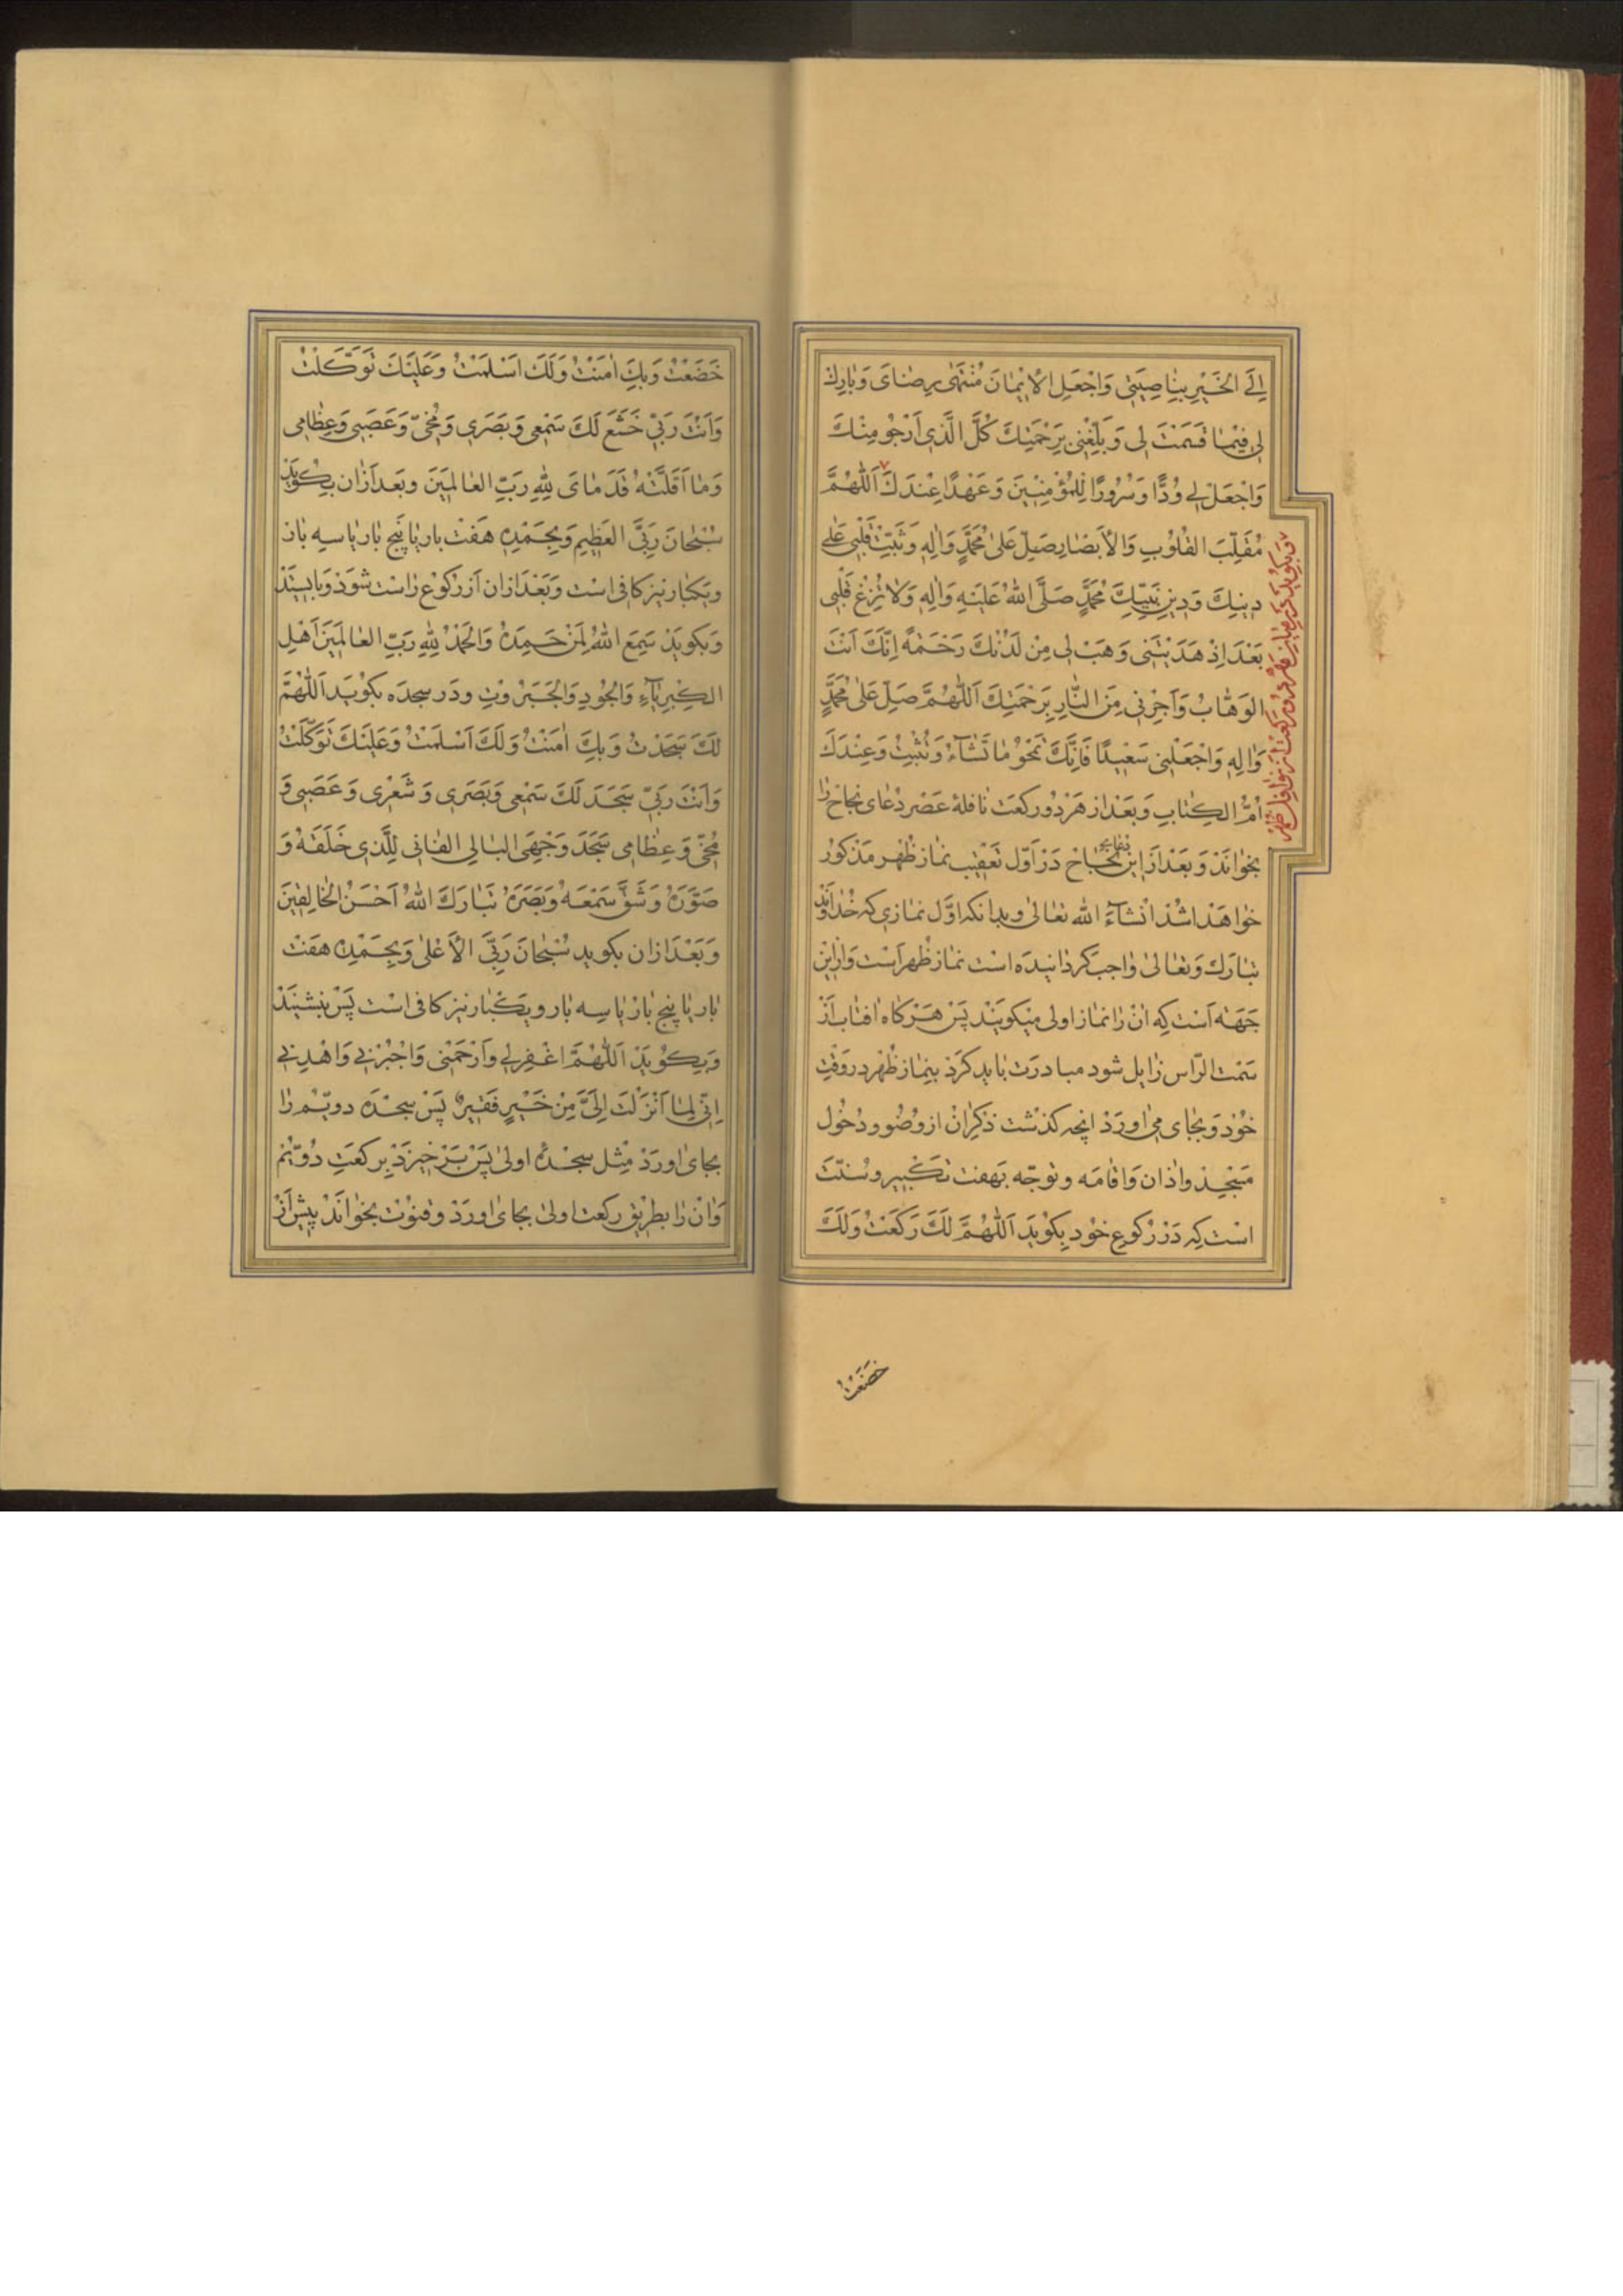 إِلَى الْخَيْرِ بِنَاصِيَتِي وَاجْعَلِ الْإِيْمَانَ مُنْتَهٰى رِضَايَ وَبَارِكْ
لِي فِيْمَا قَسَمْتَ لِي وَبَلِّغْنِي بِرَحْمَتِكَ كُلَّ الَّذِي أَرْجُو مِنْكَ
وَاجْعَلْ لِي وُدًّا وَسُرُورًا لِلْمُؤْمِنِيْنَ وَعَهْدًا عِنْدَكَ ٧ اَللّٰهُمَّ
مُقَلِّبَ الْقُلُوْبِ وَالْأَبْصَارِ صَلِّ عَلىٰ مُحَمَّدٍ وَاٰلِهِ وَثَبِّتْ قَلْبِي عَلٰى
دِينِكَ وَدِيْنِ نَبِيِّكَ مُحَمَّدٍ صَلَّى اللهُ عَلَيْهِ وَاٰلِهِ وَلَا تُزِغْ قَلْبِي
بَعْدَ اِذْ هَدَيْتَنِي وَهَبْ لِي مِنْ لَدُنْكَ رَحْمَةً اِنَّكَ اَنْتَ
الوَهَّابُ وَاَجِرْنِي مِنَ النَّارِ بِرَحْمَتِكَ اَللّٰهُمَّ صَلِّ عَلٰى مُحَمَّدٍ
وَاٰلِهِ وَاجْعَلْنِي سَعْيِدًا فَاِنَّكَ تَمْحُو مَا تَشَآءُ وَتُثْبِتُ وَعِنْدَكَ
اُمُّ الْكِتَابِ وَبَعْدَ از هَرْ دُو رَكعَت نَافلۀ عَصْر دُعَاى نجاح را
بخوَانَدْ وَبَعْدَ اَز اين نجاح دَرْ اَوّل تَعْقيب نماز ظُهر مَذكورْ
خوَاهَد شُدْ انْشَآءَ الله تعالىٰ وبدانكه اوَّل نمازى كه خُدَاوَنْد
تبَارَك وَتعَالىٰ وَاجبْ كردَانيدَه است نمَاز ظُهر اَسْت وَازاين
جَهَة اَسْت كِه انْ رَا نمَاز اولى ميكويَنْد پَسْ هَرْكاه افتاب اَزْ
سَمْت الرّاس زَايل شود مبادرَت بايد كَرد بِنمَاز ظُهْر در وَقْتِ
خُود وَ بجَاى مى اورَدْ انچه كذشْت ذكرانْ از وُضُو ودخُول
مَسْجِد واذان وَاقَامَه وتوَجّه بَهفت تكْبير وسُنّت
اسْت كِه دَرْ رُكوعِ خوُد بكوُيد اَللّٰهُمَّ لَكَ رَكَعْتُ وَلَكَ
خَضَعْتُ
خَضَعْتُ وَبِكَ اٰمَنْتُ وَلَكَ اَسْلَمْتُ وَعَلَيْكَ تَوَكَّلْتُ
وَاَنْتَ رَبّي خَشَعَ لَكَ سَمْعِي وَبَصَرِي وَمُخّي وَعَصَبِي وَعِظَامِي
وَمَا اَقَلَّتْهُ قَدَمَايَ لِلّٰهِ رَبِّ العَالَمِيْنَ وبَعد ازان بِكويَدْ
سُبْحَانَ رَبِّيَ العَظِيمِ وَبِحَمْدِهِ هَفْت بار يَا پَنْج بار يَا سه بار
ويكبار نيز كافى است وَبَعْدَ ازان اَز ركوع رَاسْت شوَدْ وَبايستَدْ
وَبكويَدْ سَمِعَ اللهُ لِمَنْ حَمِدَهُ وَالْحَمْدُ لِلّٰهِ رَبِّ العَالَمِيْنَ اَهْلِ
الكِبْرِيَآءِ وَالْجُودِ وَالْجَبَرُوْتِ ودَر سجدَه بكويَد اَللّٰهُمَّ
لَكَ سَجَدْتُ وَبِكَ اٰمَنْتُ وَلَكَ اَسْلَمْتُ وَعَلَيْكَ تَوَكَّلْتُ
وَاَنْتَ رَبّي سَجَدَ لَكَ سَمْعِي وَبَصَرِي وَشَعْرِي وَعَصَبِي وَ
مُخّي وَعِظَامِي سَجَدَ وَجْهِيَ البَالِي الفَانِي لِلَّذِي خَلَقَهُ وَ
صَوَّرَهُ وَشَقَّ سَمْعَهُ وَبَصَرَهُ تَبَارَكَ اللهُ اَحْسَنُ الْخَالِقِيْنَ
وَبَعْدَ ازان بكويد سُبْحَانَ رَبِّيَ الْاَعْلٰى وَبِحَمْدِهِ هَفت
بار يَا پنج بارْ يَا سِه بار ويكبَار نيز كافى است پَسْ بنشينَدْ
وَبِكوُيَدْ اَللّٰهُمَّ اغْفِرْ لِي وَارْحَمْنِي وَاجْبُرْنِي وَاهْدِنِي
اِنّي لِمَا اَنْزَلْتَ اِلَيَّ مِنْ خَيْرٍ فَقِيْرٌ پَسْ سجْدَه دويّم رَا
بجاى اورَدْ مِثْل سجْدۀ اولىٰ پَسْ بَرْخيزَدْ بركعَتِ دُويّم
وَانْ رَا بطريق ركعت اولىٰ بجاى اورَدْ وقنوُت بخوَانَدْ پيش اَزْ